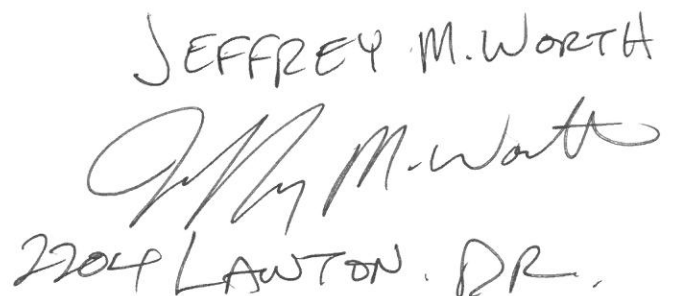 JEFFREY M. WORTH
Jeffrey M. Worth
2204 LAWTON. DR.